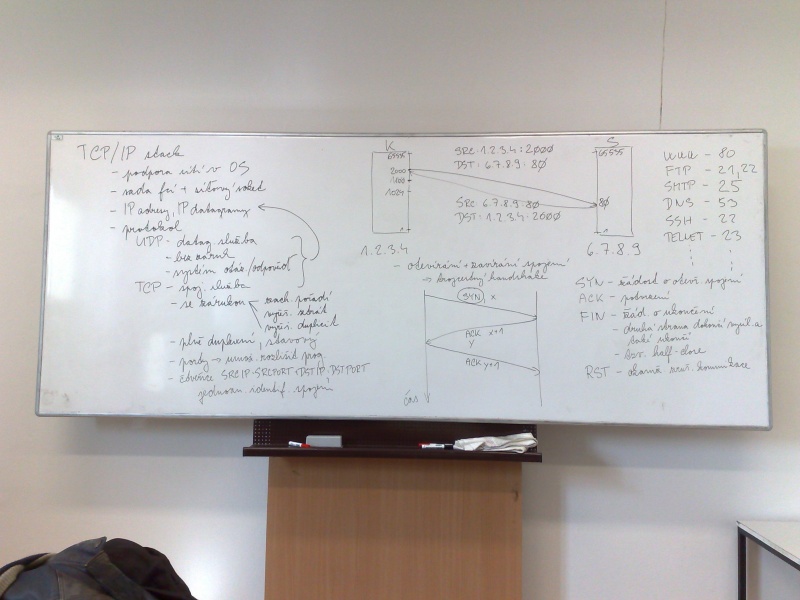 TCP/IP stack
- podpora sítí v OS
- sada fcí + síťový soket
- IP adresy, IP datagramy
- protokol
UDP - datag. služba
- bez záruk
- systém otáz./odpověď
TCP - spoj. služba
- se zárukou
zach. pořadí
vyřeš. ztrát
vyřeš. duplicit
- plně duplexní, stavový
- porty → umož. rozlišit prog.
- čtveřice SRCIP+SRCPORT+DSTIP+DSTPORT
jednozn. identif. spojení
K
65535
2000
1100
1024
1.2.3.4
SRC: 1.2.3.4 : 2000
DST: 6.7.8.9 : 80
SRC: 6.7.8.9 : 80
DST: 1.2.3.4 : 2000
S
65535
80
6.7.8.9
- otevírání + zavírání spojení
→ trojcestný handshake
SYN x
ACK x+1
y
ACK y+1
čas
WWW - 80
FTP - 21,22
SMTP - 25
DNS - 53
SSH - 22
TELNET - 23
SYN - žádost o otevř. spojení
ACK - potvrzení
FIN - žád. o ukončení
- druhá strana dokončí vysíl. a
také ukončí
- tzv. half-close
RST - okamž. komunikace